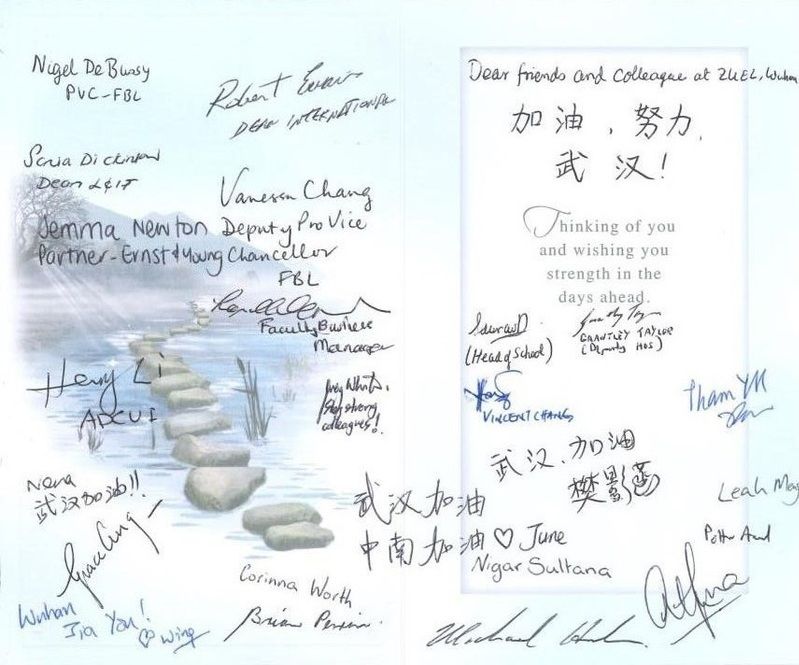 Nigel De Bussy
PVC-FBL
Robert Evans
DEAN INTERNATIONAL
Sonia Dickinson
Dean L&IT
Vanessa Chang
Deputy Pro Vice
Chancellor
FBL
Jemma Newton
Partner-Ernst & Young
Faculty Business
Manager
Henry Li
stay strong
colleagues!
Nena
武汉加油!!
Grace
Wuhan
Jia You!
♡ Wing
Corinna Worth
Brian
Dear friends and colleague at ZUEL, Wuhan
加油,努力,
武汉!
Thinking of you
and wishing you
strength in the
days ahead.
(Head of School)
GRANTLEY TAYLOR
(Deputy HoS)
VINCENT CHANG
Tham YM
武汉,加油
武汉加油
中南加油♡June
Nigar Sultana
Leah
Michael